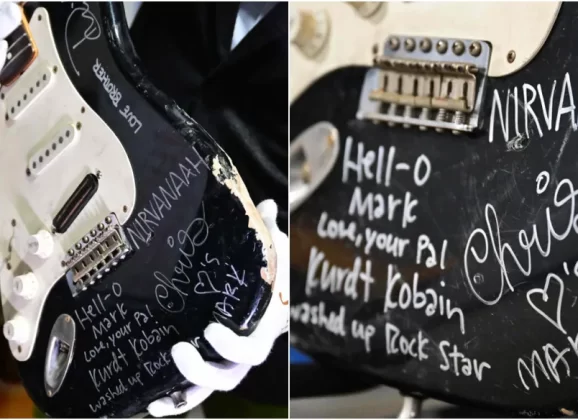 LOVE BROTHER
NIRVANAAH
Chris
♡'s
MARK
Hell-O
Mark
Love, your Pal
Kurdt Kobain
washed up Rock Star
NIRVA
Hell-O
Mark
Love, your Pal
Kurdt Kobain
washed up Rock Star
Chris
♡'s
MAR